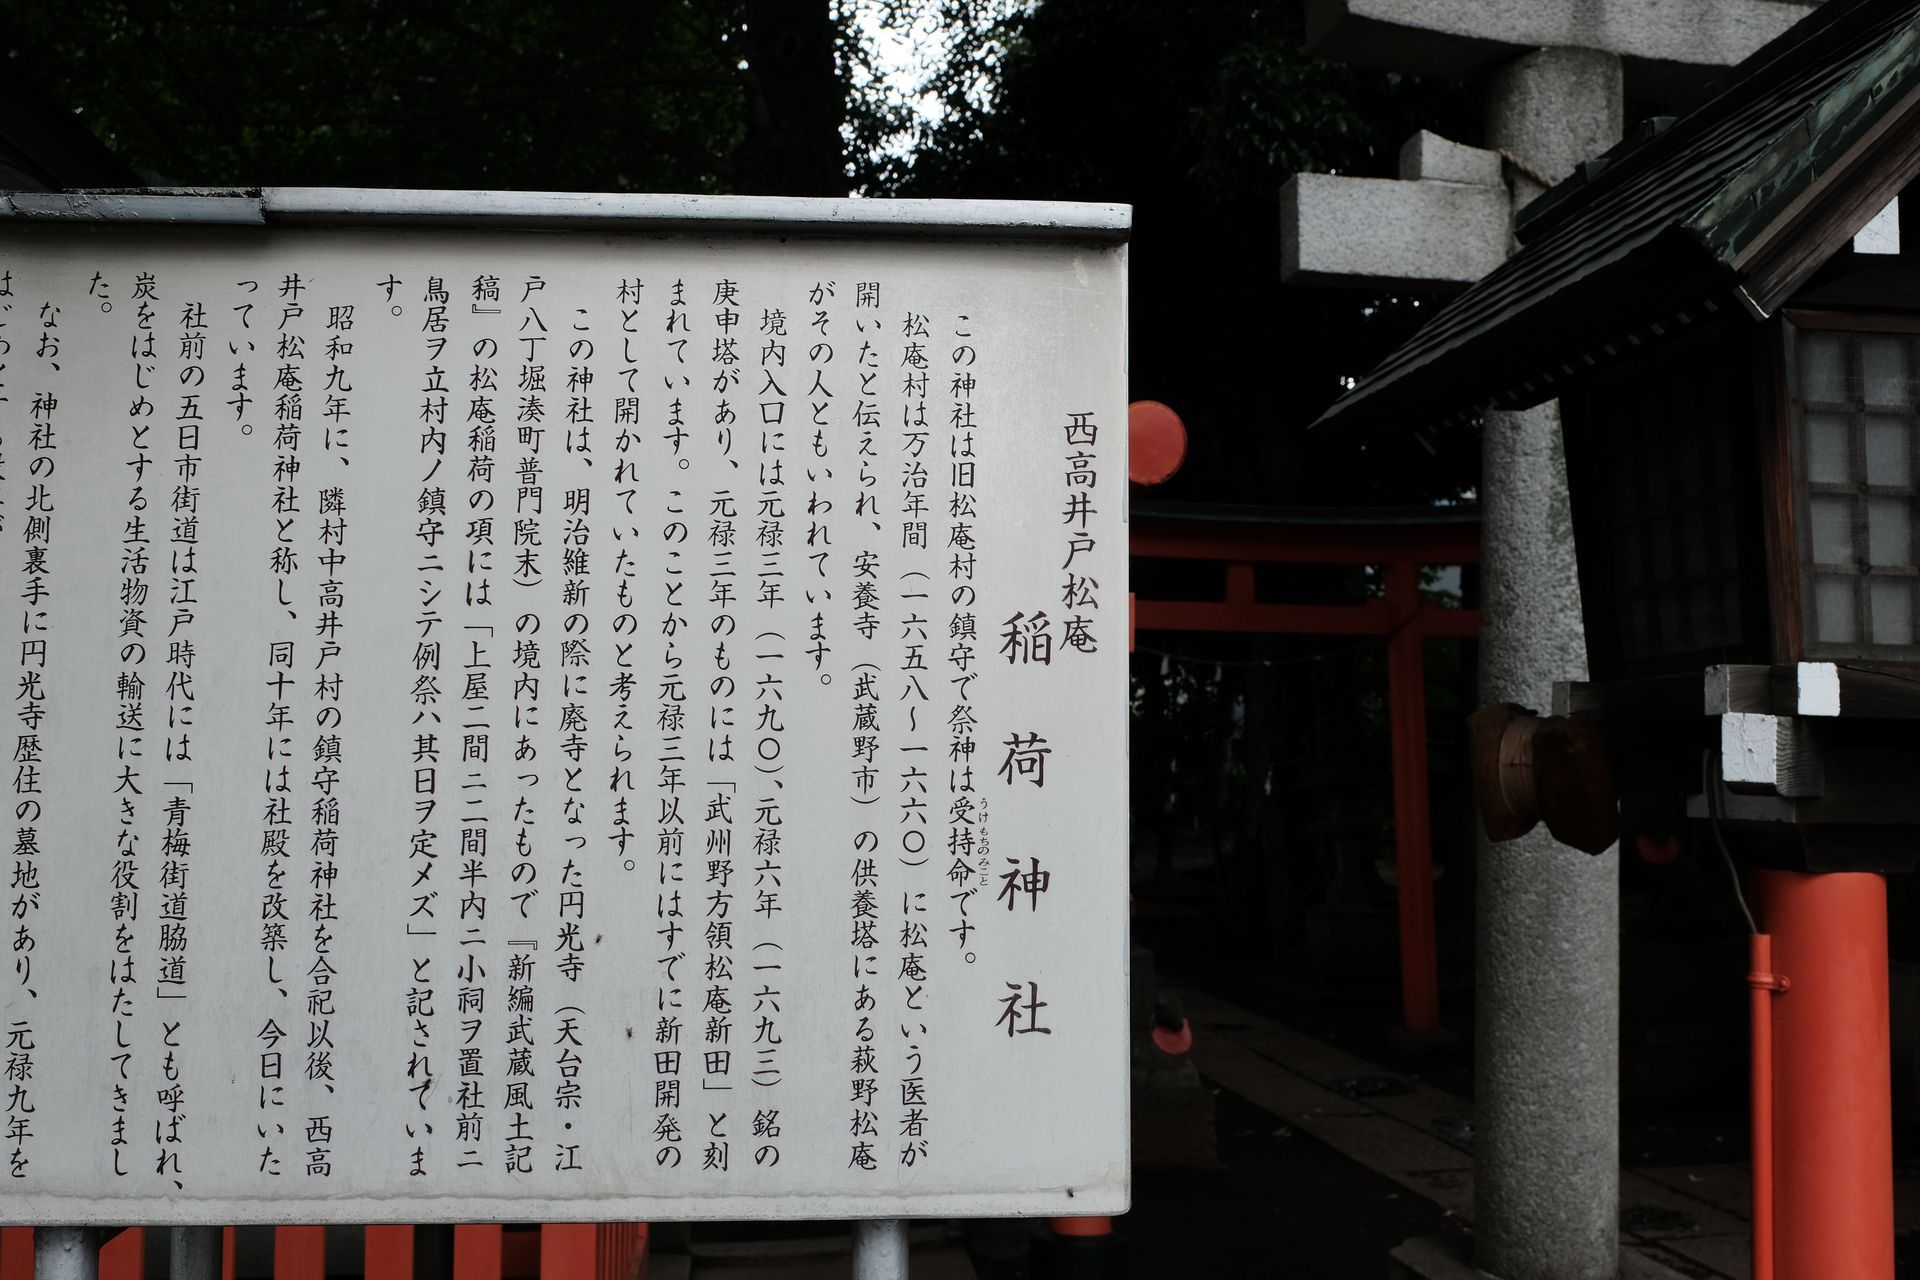 西高井戸松庵
稲荷神社
この神社は旧松庵村の鎮守で祭神は受持命です。
うけもちのみこと
松庵村は万治年間（一六五八〜一六六〇）に松庵という医者が
開いたと伝えられ、安養寺（武蔵野市）の供養塔にある萩野松庵
がその人ともいわれています。
境内入口には元禄三年（一六九〇）、元禄六年（一六九三）銘の
庚申塔があり、元禄三年のものには「武州野方領松庵新田」と刻
まれています。このことから元禄三年以前にはすでに新田開発の
村として開かれていたものと考えられます。
この神社は、明治維新の際に廃寺となった円光寺（天台宗・江
戸八丁堀湊町普門院末）の境内にあったもので『新編武蔵風土記
稿』の松庵稲荷の項には「上屋二間ニ二間半内ニ小祠ヲ置社前ニ
鳥居ヲ立村内ノ鎮守ニシテ例祭ハ其日ヲ定メズ」と記されていま
す。
昭和九年に、隣村中高井戸村の鎮守稲荷神社を合祀以後、西高
井戸松庵稲荷神社と称し、同十年には社殿を改築し、今日にいた
っています。
社前の五日市街道は江戸時代には「青梅街道脇道」とも呼ばれ、
炭をはじめとする生活物資の輸送に大きな役割をはたしてきまし
た。
なお、神社の北側裏手に円光寺歴住の墓地があり、元禄九年を